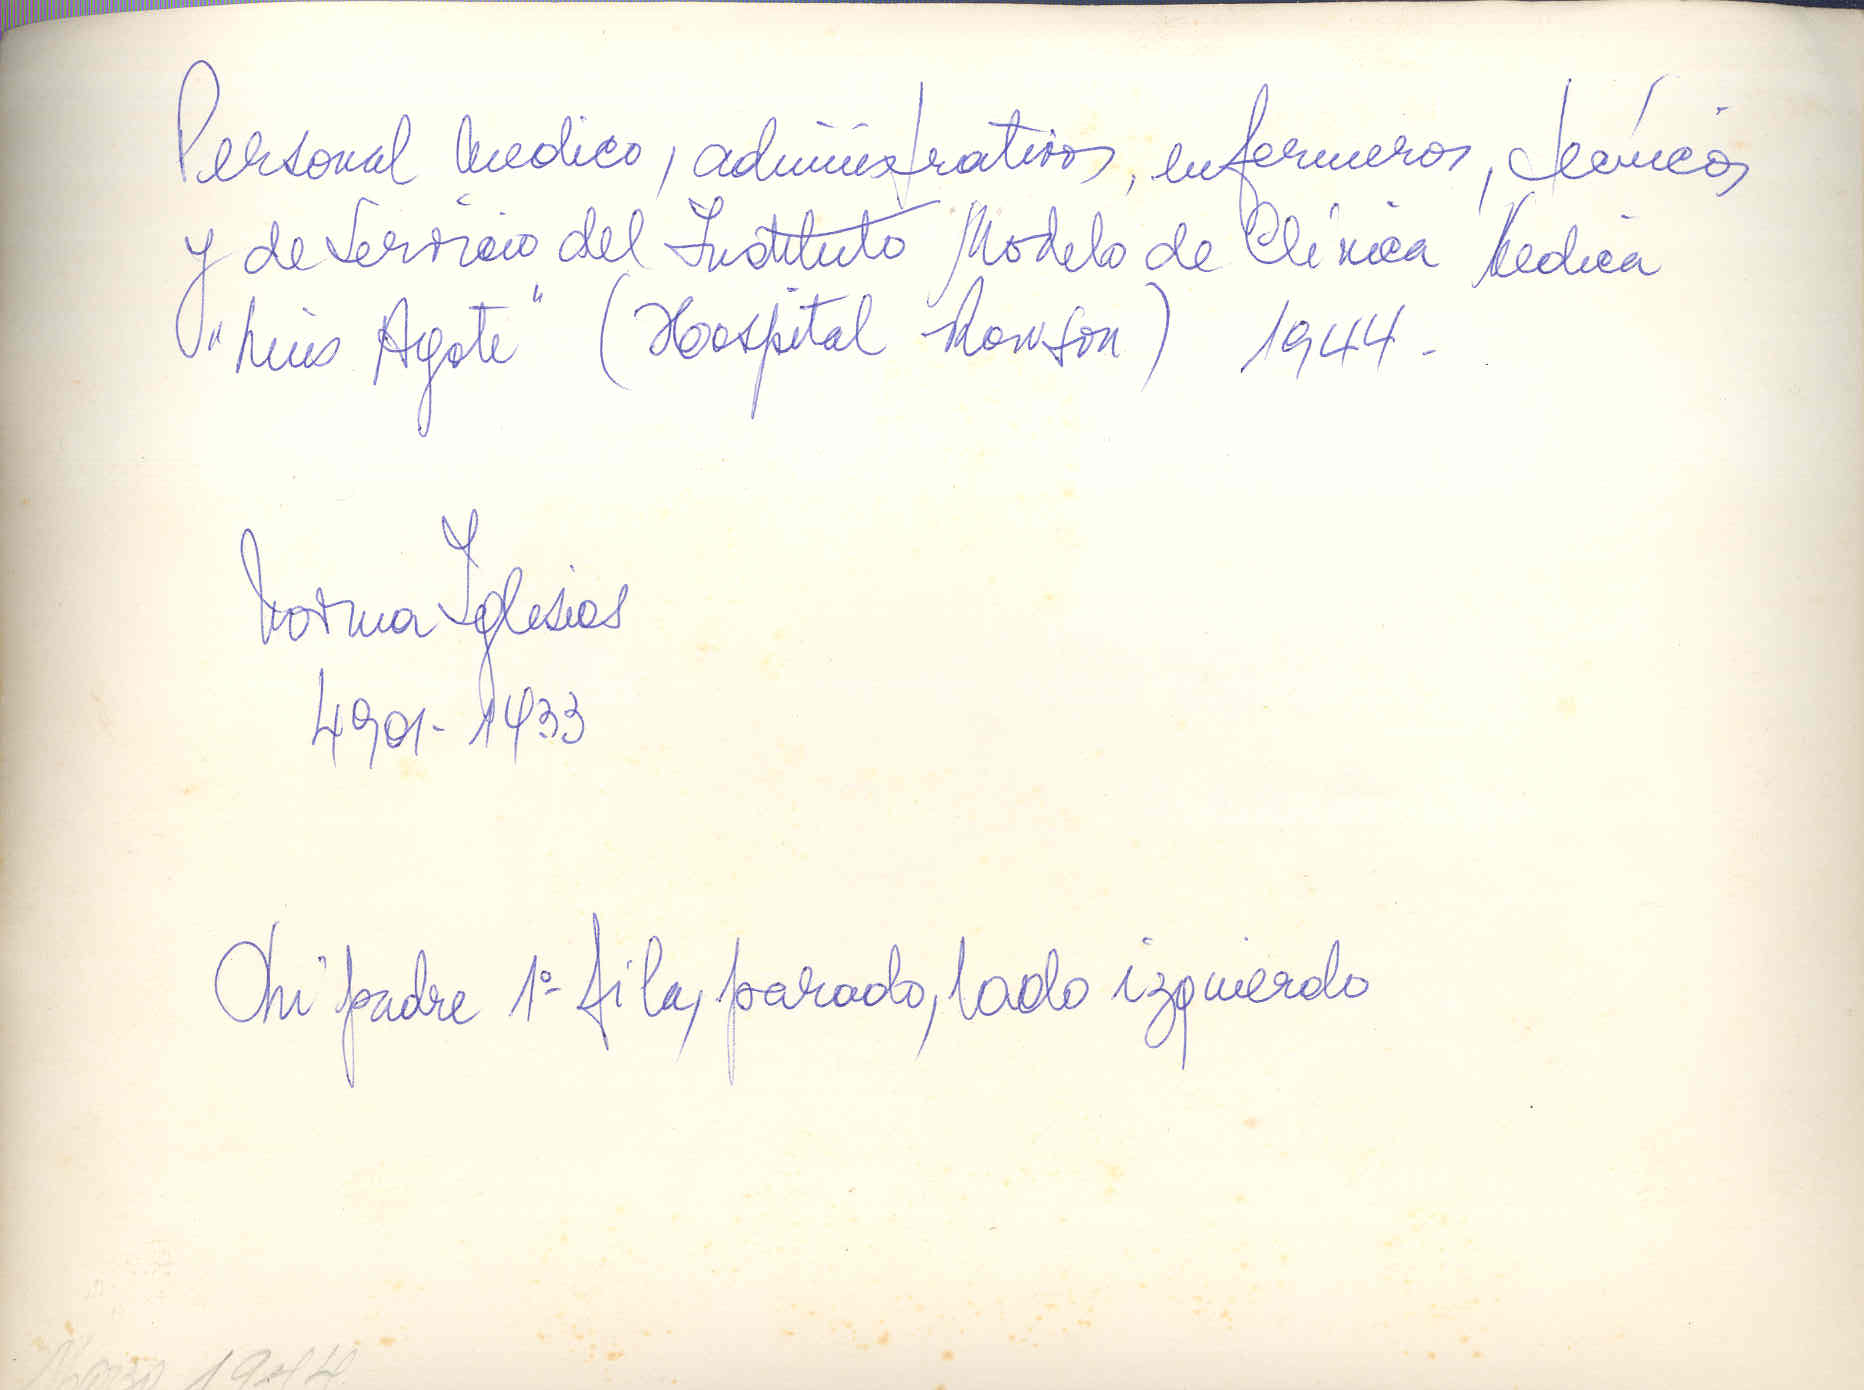 Personal medico, administrativos, enfermeros, técnicos
y de Servicio del Instituto Modelo de Clínica Medica
"Luis Agote" (Hospital Rawson) 1944-
Norma Iglesias
4901-1433
Mi padre 1º fila, parado, lado izquierdo
Marzo 1944